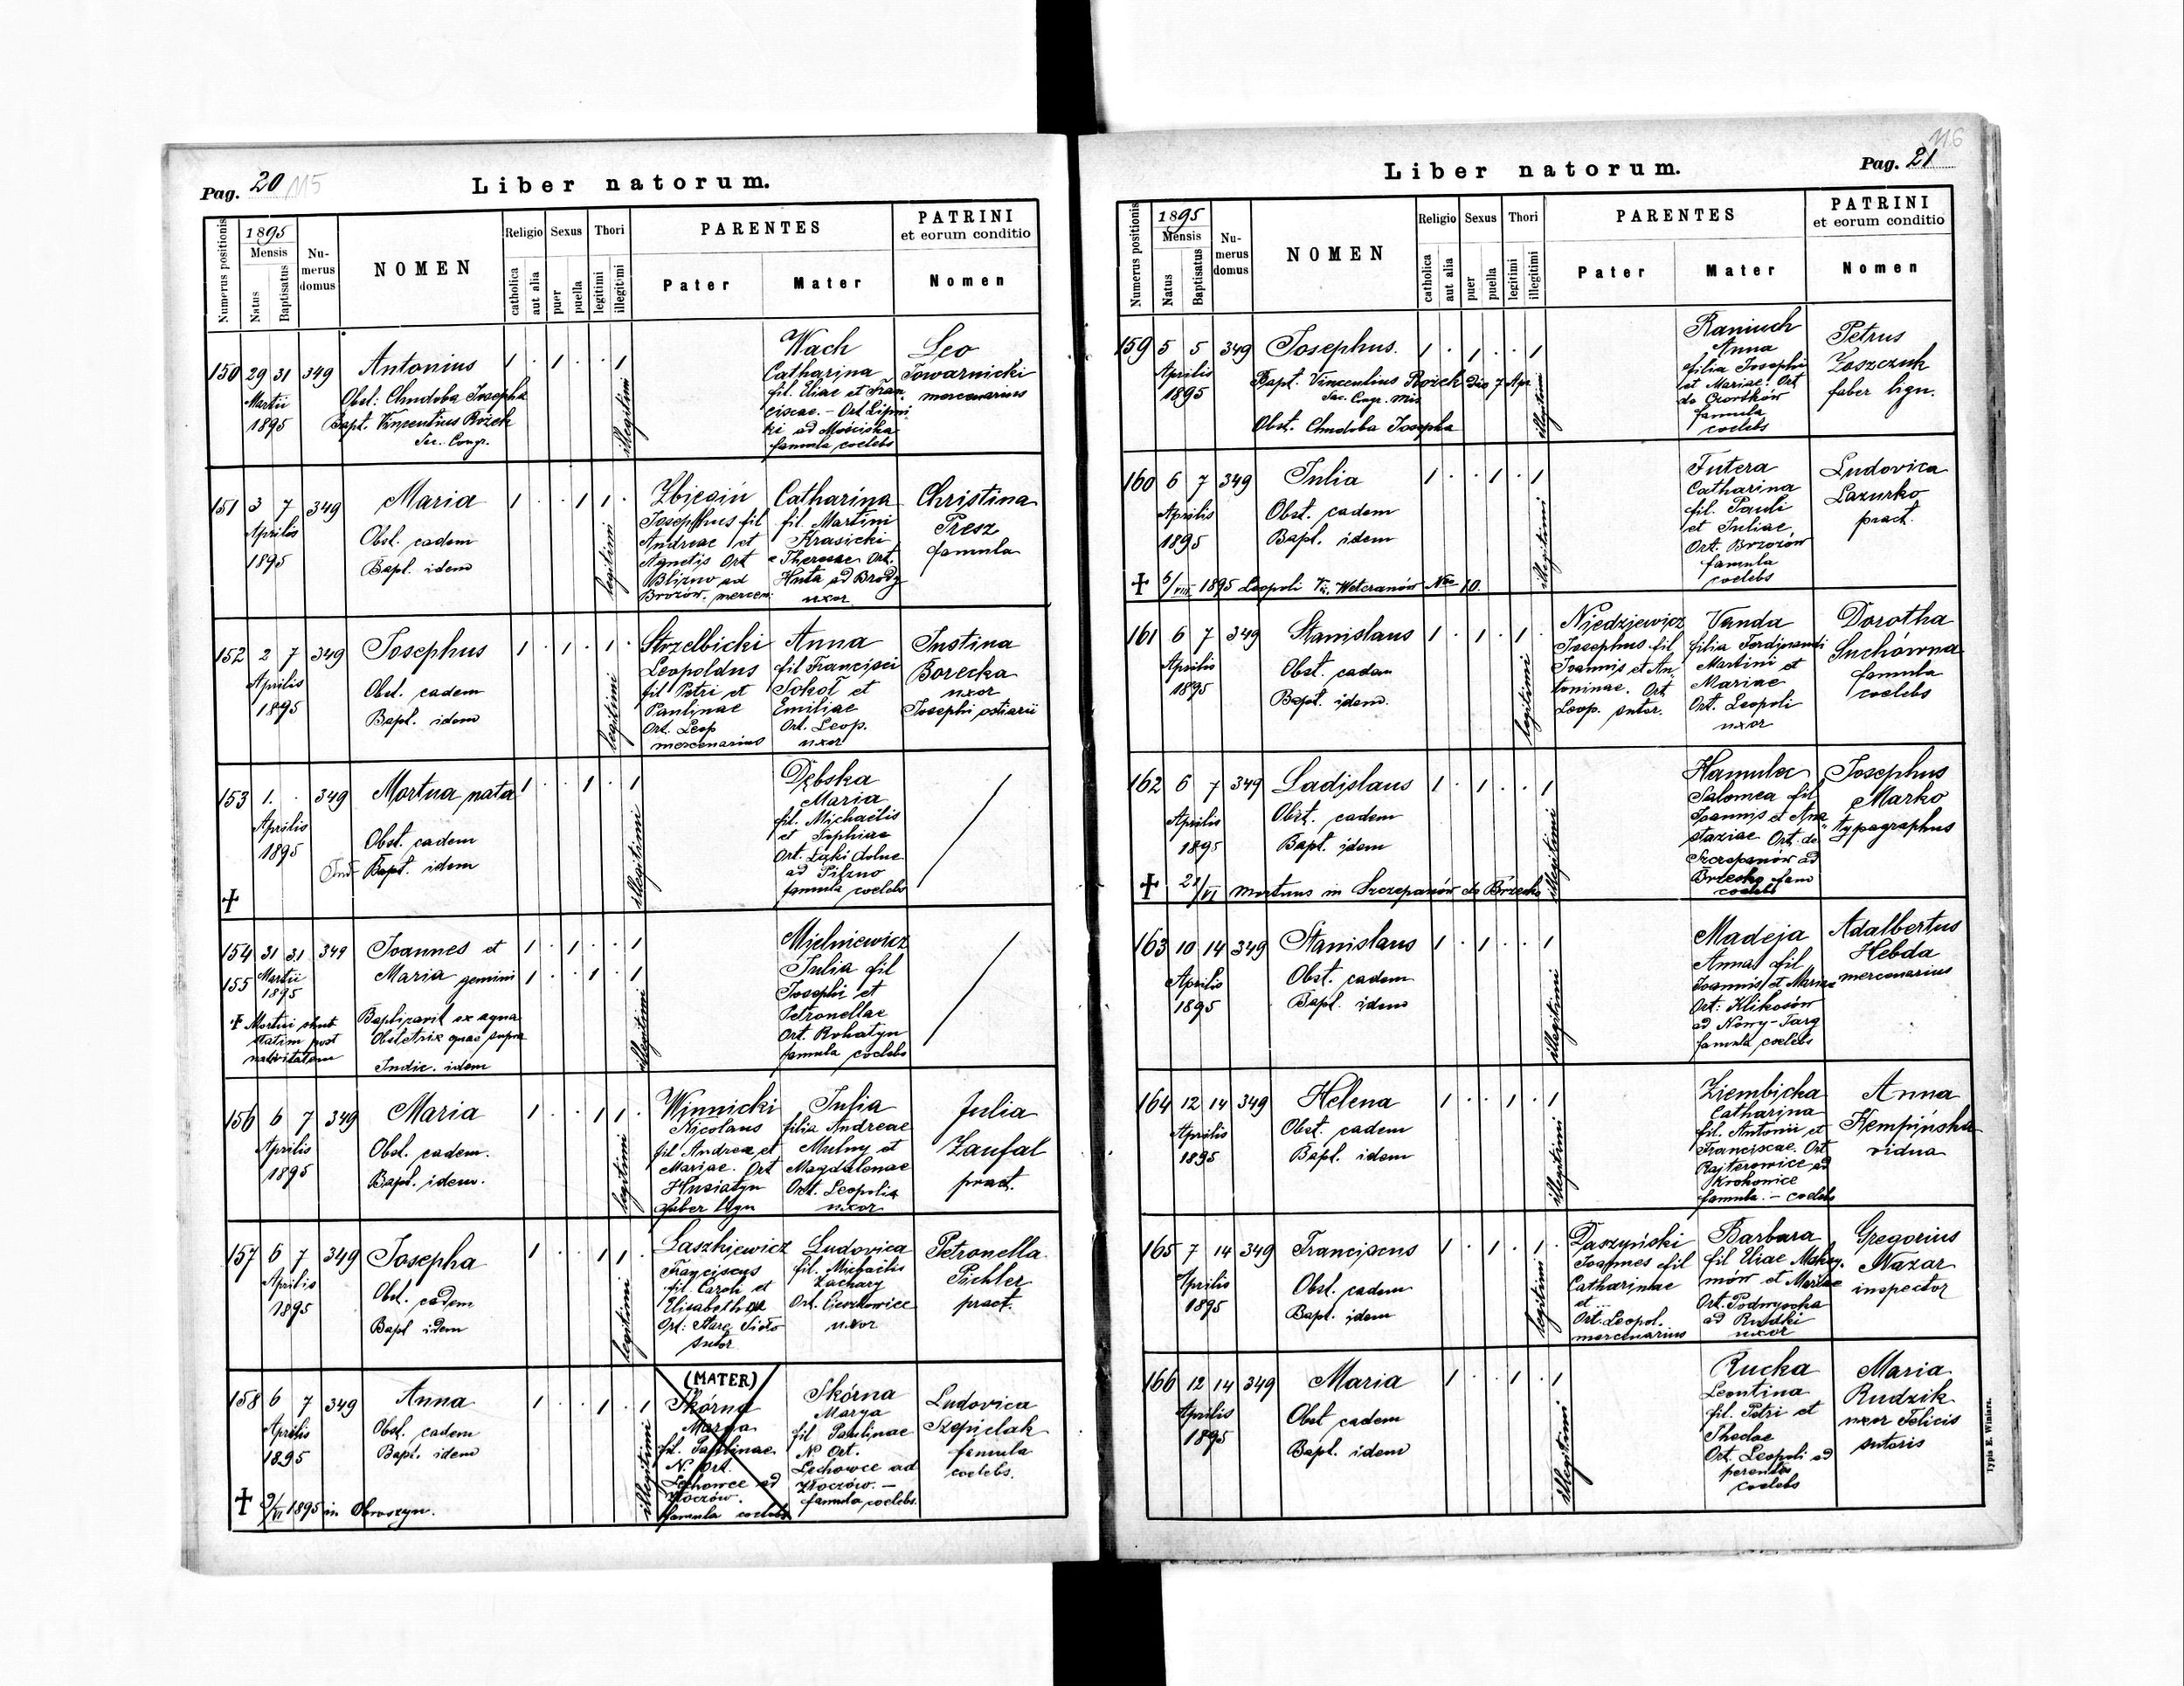 Pag. 20 115
Liber natorum.
Numerus positionis
1895
Mensis
Natus
Baptisatus
Nu-
merus
domus
NOMEN
Religio
catholica
aut alia
Sexus
puer
puella
Thori
legitimi
illegitimi
PARENTES
Pater
Mater
PATRINI
et eorum conditio
Nomen
150 29 31 349 Antonius 1 . 1 . . 1
Martii
1895
Obst: Chudoba Josepha
Bapt. Vincentius Rożek
Sac. Congr.
illegitimi
Wach
Catharina
fil. Eliae et Fran
ciscae. – Ort Lipni
ki ad Mościska
famula coelebs
Leo
Towarnicki
mercenarius
151 3 7 349 Maria 1 . . 1 1 .
Aprilis
1895
Obst. eadem
Bapt. idem
legitimi
Josephus fil
Andreae et
Agnetis Ort
Blizne ad
Brozów. mercen:
Catharina
fil. Martini
Krasicki
et Theresae Ort.
Huta ad Brody
uxor
Christina
Presz
famula
152 2 7 349 Josephus 1 . 1 . 1 .
Aprilis
1895
Obst. eadem
Bapt. idem
legitimi
Strzelbicki
Leopoldus
fil Petri et
Paulinae
Ort. Leop
mercenarius
Anna
fil Francisci
Sokoł et
Emiliae
Ort. Leop.
uxor
Justina
Borecka
uxor
Josephi ostiarii
153 1. . 349 Mortua nata 1 . . 1 . 1
Aprilis
1895
Obst. eadem
Bapt. idem
illegitimi
Dębska
Maria
fil. Michaelis
et Sophiae
Ort. Łęki dolne
ad Pilzno
famula coelebs
154 31 31 349 Joannes et 1 . 1 . . 1
155 Martii Maria gemini 1 . . 1 . 1
1895
+ Mortui sunt
statim post
nativitatem
Baptizavit ex aqua
Obstetrix quae supra
Indic. idem
illegitimi
Mielniewicz
Julia fil
Josephi et
Petronellae
Ort. Rohatyn
famula coelebs
156 6 7 349 Maria 1 . . 1 1 .
Aprilis
1895
Obst. eadem.
Bapt. idem.
legitimi
Winnicki
Nicolaus
fil Andreae et
Mariae. Ort
Husiatyn
faber lign
Julia
filia Andreae
Mulny et
Magdalenae
Ort. Leopolis
uxor
Julia
Zaufal
pract.
157 6 7 349 Josepha 1 . . 1 1 .
Aprilis
1895
Obst. eadem
Bapt idem
legitimi
Laszkiewicz
Franciscus
fil. Caroli et
Elisabethae
Ort: Stare Sioło
sutor
Ludovica
fil. Michaelis
Zachary
Ort. Cieszkowice
uxor
Petronella
Pichler
pract.
158 6 7 349 Anna 1 . . 1 . 1
Aprilis
1895
Obst. eadem
Bapt. idem
+ 9/VI 1895 in Obroszyn.
illegitimi
(MATER)
Skórna
Marya
fil. Paulinae
N. Ort.
Lechowce ad
Złoczów.
famula coelebs
Skórna
Marya
fil Paulinae
N Ort.
Lechowce ad
Złoczów. –
famula coelebs.
Ludovica
Szepielak
famula
coelebs.
116
Pag. 21
Liber natorum.
Numerus positionis
1895
Mensis
Natus
Baptisatus
Nu-
merus
domus
NOMEN
Religio
catholica
aut alia
Sexus
puer
puella
Thori
legitimi
illegitimi
PARENTES
Pater
Mater
PATRINI
et eorum conditio
Nomen
159 5 5 349 Josephus. 1 . 1 . . 1
Aprilis
1895
Bapt. Vincentius Rożek die 7 Apr.
Sac. Congr. Mis
Obst. Chudoba Josepha
illegitimi
Raniuch
Anna
filia Josephi
et Mariae. Ort
de Czortków
famula
coelebs
Petrus
Zoszczuk
faber lign.
160 6 7 349 Julia 1 . . 1 . 1
Aprilis
1895
Obst. eadem
Bapt. idem
+ 5/VIII 1895 Leopoli Weteranów Nro 10.
illegitimi
Futera
Catharina
fil. Pauli
et Juliae
Ort. Brzozów
famula
coelebs
Ludovica
Lazurko
pract.
161 6 7 349 Stanislaus 1 . 1 . 1 .
Aprilis
1895
Obst. eadem
Bapt. idem.
legitimi
Niedziewicz
Josephus fil
Joannis et An-
toninae. Ort
Leop. sutor.
Vanda
filia Ferdinandi
Martini et
Mariae
Ort. Leopoli
uxor
Dorotha
Suchówna
famula
coelebs
162 6 7 349 Ladislaus 1 . 1 . . 1
Aprilis
1895
Obst. eadem
Bapt. idem
+ 21/VI mortuus in Szczepanów ad Brzesko
illegitimi
Hamula
Salomea fil
Joannis et Ana
staziae Ort. de
Szczepanów ad
Brzesko fam
coelebs
Josephus
Marko
typographus
163 10 14 349 Stanislaus 1 . 1 . . 1
Aprilis
1895
Obst. eadem
Bapt. idem
illegitimi
Madeja
Anna fil
Joannis et Mariae
Ort: Klikusów
ad Nowy-Targ
famula coelebs
Adalbertus
Hebda
mercenarius
164 12 14 349 Helena 1 . . 1 . 1
Aprilis
1895
Obst. eadem
Bapt. idem
illegitimi
Ziembicka
Catharina
fil. Antonii et
Franciscae. Ort
Rajterowice ad
Krokowice
famula. – coelebs
Anna
Kempińska
vidua
165 7 14 349 Franciscus 1 . 1 . 1 .
Aprilis
1895
Obst. eadem
Bapt. idem
legitimi
Daszyński
Joannes fil
Catharinae
et ...
Ort. Leopol.
mercenarius
Barbara
fil Eliae Maksy-
mów et Mariae
Ort. Podwysoka
ad Rudki
uxor
Gregorius
Nazar
inspector
166 12 14 349 Maria 1 . . 1 . 1
Aprilis
1895
Obst eadem
Bapt. idem
illegitimi
Rucka
Leontina
fil. Petri et
Theclae
Ort. Leopoli ad
parentes
coelebs
Maria
Rudzik
uxor Felicis
sutoris
Typis E. Winiarz.